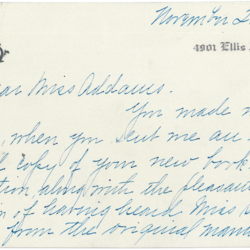 November 2
4901 Ellis
ear Miss Addams.
You made m
, when you sent me au
copy of your new book
tion along with the pleasur
n of having heard, Miss
from the original man